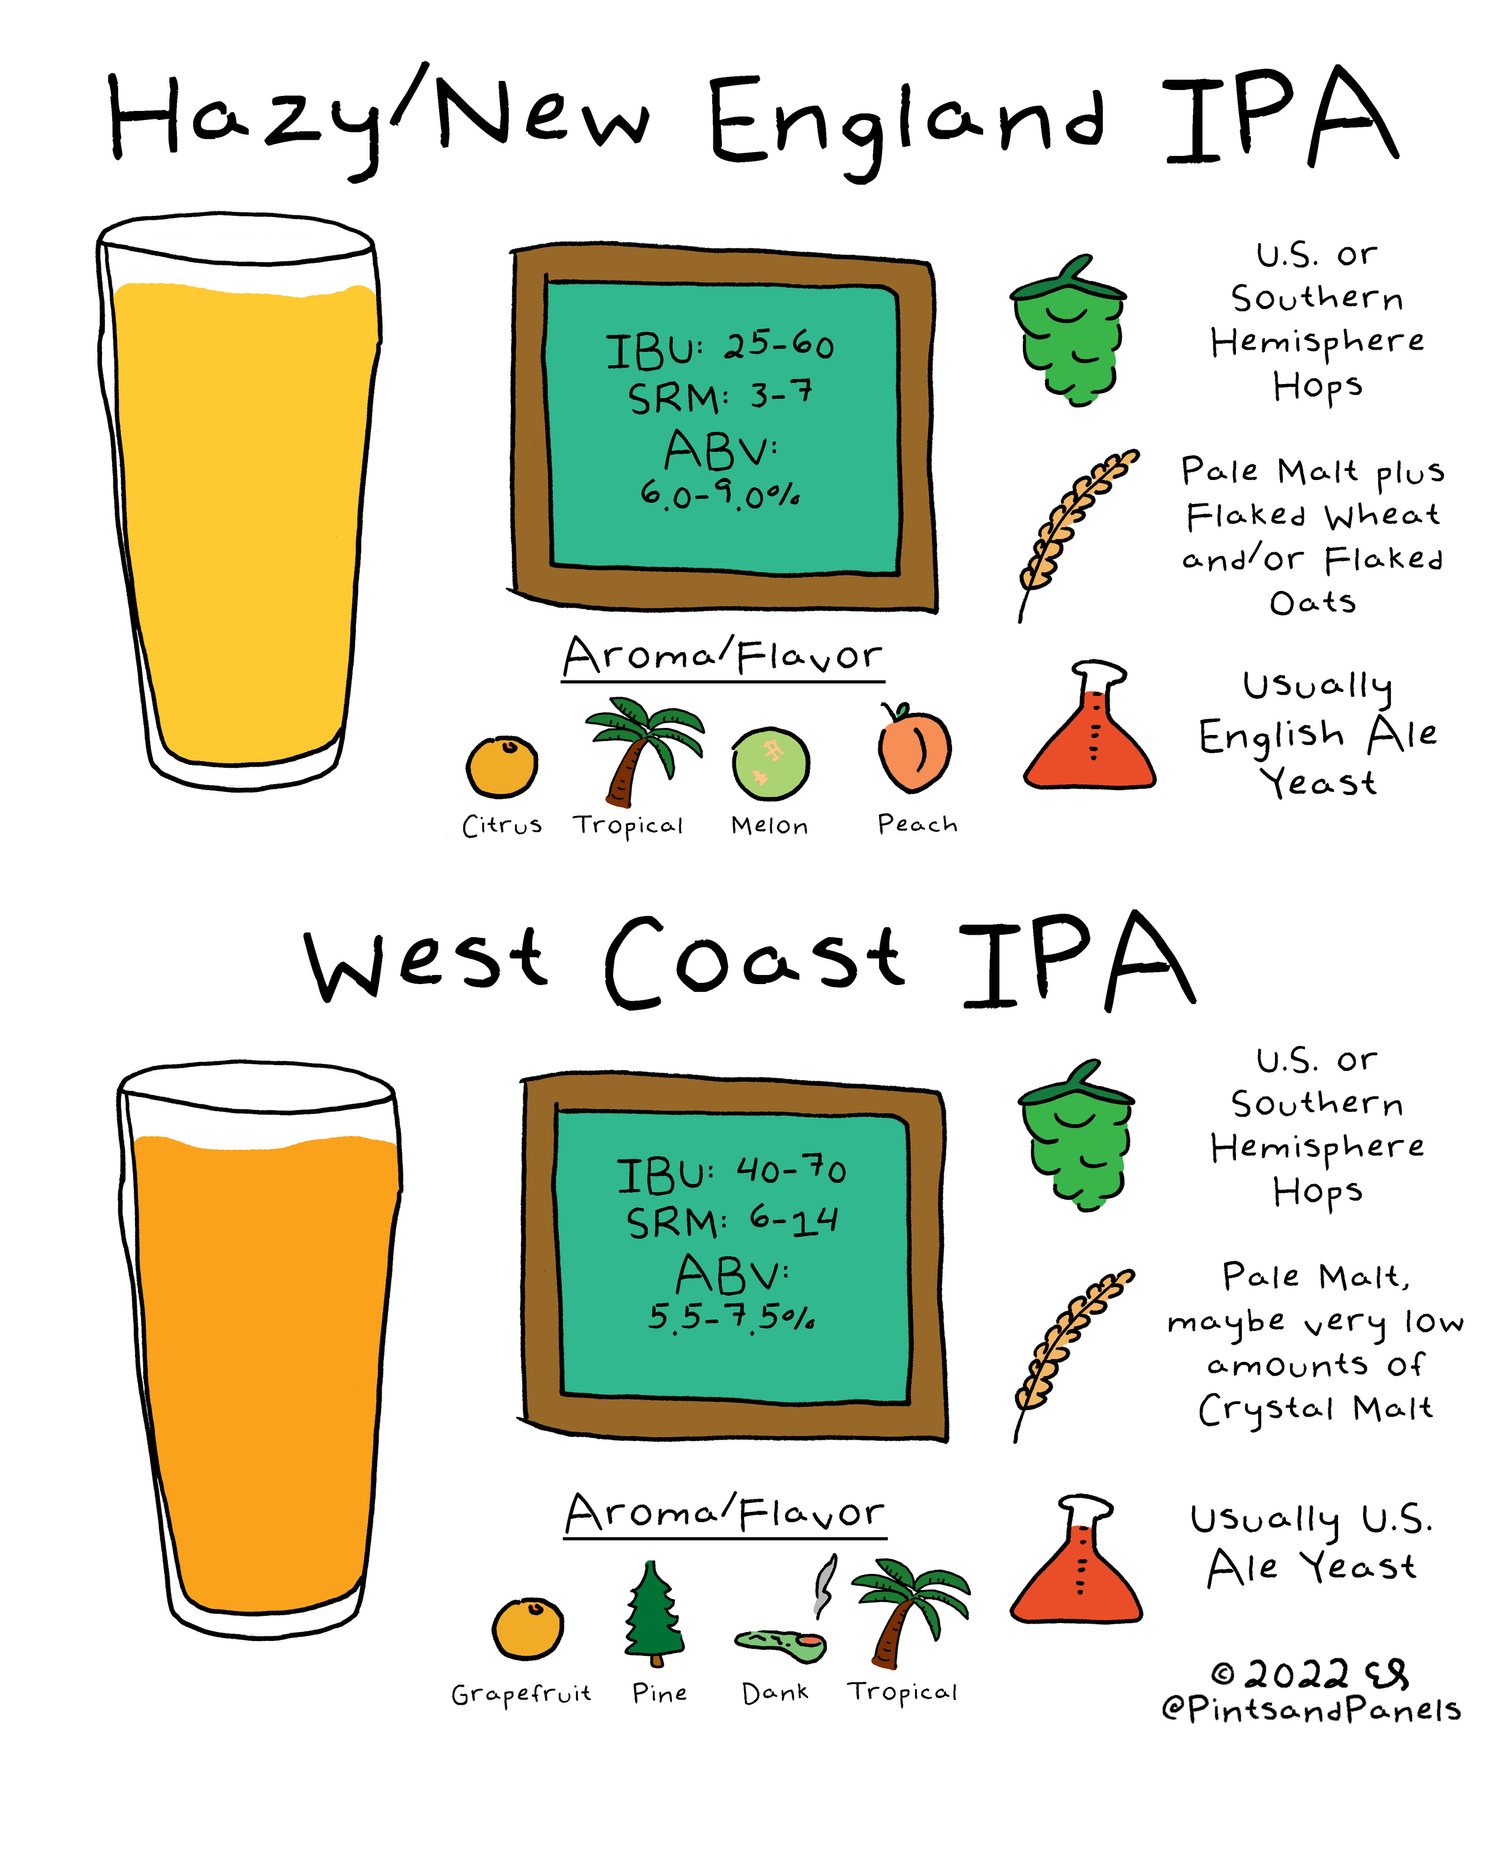 Hazy/New England IPA
IBU: 25-60
SRM: 3-7
ABV:
6.0-9.0%
Aroma/Flavor
Citrus
Tropical
Melon
Peach
U.S. or
Southern
Hemisphere
Hops
Pale Malt plus
Flaked Wheat
and/or Flaked
Oats
Usually
English Ale
Yeast
West Coast IPA
IBU: 40-70
SRM: 6-14
ABV:
5.5-7.5%
Aroma/Flavor
Grapefruit
Pine
Dank
Tropical
U.S. or
Southern
Hemisphere
Hops
Pale Malt,
maybe very low
amounts of
Crystal Malt
Usually U.S.
Ale Yeast
© 2022
@PintsandPanels